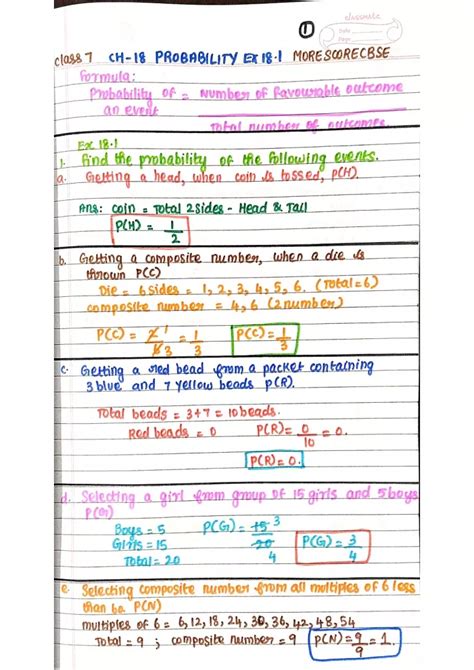 classmate
Date
Page
1
Class 7 CH-18 PROBABILITY EX 18.1 MORESCORECBSE
Formula:
Probability of = Number of Favourable outcome
an event
Total number of outcomes.
Ex 18.1
1. Find the probability of the following events.
a. Getting a head, when coin is tossed, P(H).
Ans: coin = Total 2 sides - Head & Tail
P(H) = 1/2
b. Getting a composite number, when a die is
thrown P(C)
Die = 6 sides = 1, 2, 3, 4, 5, 6. (Total = 6)
composite number = 4, 6 (2 number)
P(C) = 2 1/6 3 = 1/3 P(C) = 1/3
c. Getting a red bead from a packet containing
3 blue and 7 yellow beads P(R).
Total beads = 3+7 = 10 beads.
Red beads = 0 P(R) = 0/10 = 0.
P(R) = 0.
d. Selecting a girl from group of 15 girls and 5 boys
P(G)
Boys = 5 P(G) = 15 3/20 4 P(G) = 3/4
Girls = 15
Total = 20
e. Selecting composite number from all multiples of 6 less
than 60 P(N)
multiples of 6 = 6, 12, 18, 24, 30, 36, 42, 48, 54
Total = 9 ; composite number = 9 P(N) = 9/9 = 1.